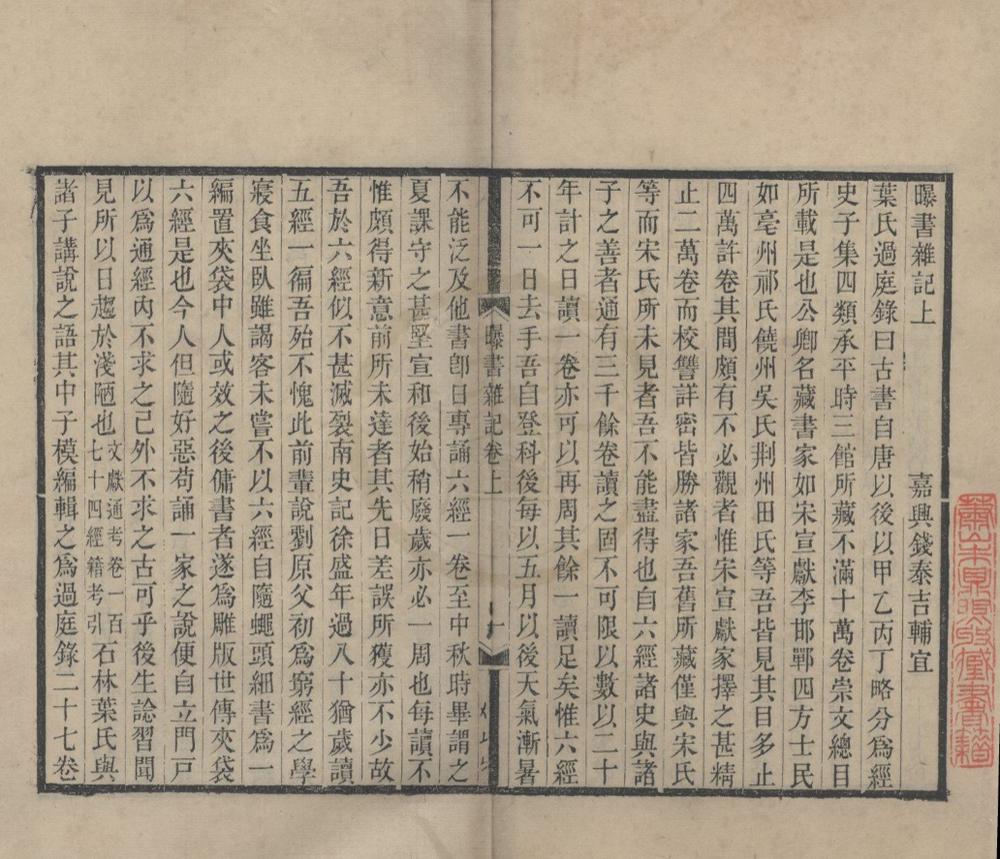 曝書雜記上
嘉興錢泰吉輔宜
葉氏過庭錄曰古書自唐以後以甲乙丙丁略分為經
史子集四類承平時三館所藏不滿十萬卷崇文總目
所載是也公卿名藏書家如宋宣獻李邯鄲四方士民
如亳州祁氏饒州吳氏荆州田氏等吾皆見其目多止
四萬許卷其間頗有不必觀者惟宋宣獻家擇之甚精
止二萬卷而校讐詳密皆勝諸家吾舊所藏僅與宋氏
等而宋氏所未見者吾不能盡得也自六經諸史與諸
子之善者通有三千餘卷讀之固不可限以數以二十
年計之日讀一卷亦可以再周其餘一讀足矣惟六經
不可一日去手吾自登科後每以五月以後天氣漸暑
曝書雜記卷上
一
不能泛及他書卽日專誦六經一卷至中秋時畢謂之
夏課守之甚堅宣和後始稍廢歲亦必一周也每讀不
惟頗得新意前所未達者其先日差誤所獲亦不少故
吾於六經似不甚滅裂南史記徐盛年過八十猶歲讀
五經一徧吾殆不愧此前輩說劉原父初為窮經之學
寢食坐臥雖謁客未嘗不以六經自隨蠅頭細書為一
編置夾袋中人或效之後傭書者遂為雕版世傳夾袋
六經是也今人但隨好惡苟誦一家之說便自立門戸
以為通經內不求之己外不求之古可乎後生諗習聞
見所以日趨於淺陋也文獻通考卷一百七十四經籍考引石林葉氏與
諸子講說之語其中子模編輯之為過庭錄二十七卷